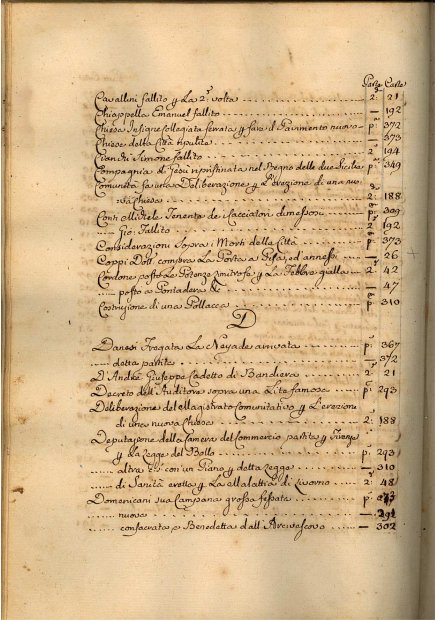 Parte Carte
Cavallini fallito p La 2ª volta 2ª 21
Chiappella Emanuel fallito — 192
Chiesa Insigne Collegiata serrata p fare il Pavimento nuovo pª 372
Chiese della Città ripulite — 373
Ciandi Simone fallito 2ª 194
Compagnia di Gesù ripristinata nel Regno delle due Sicilie pª 349
Comunità fa una Deliberazione p L'erezione di una nuo
va Chiesa 2ª 188
Conti Michele Tenente de Cacciatori dimesso pª 309
Gio: Fallito 2ª 192
Considerazioni sopra i Morti della Città pª 373
Coppi Dott. compra La Posta a Pisa, ed annessi — 26
Cordone posto La Potenza p La Febbre gialla 2ª 42
posto a Pontadera &c — 47
Costruzione di una Pollacca pª 310
D
Danesi Fregata La Neyade arrivata pª 367
detta partita — 372
D'André Giuseppe Cadetto di Bandiera 2ª 21
Decreto dell'Auditore sopra una Lite famosa pª 293
Deliberazione del Magistrato Comunitativo p L'erezione
di una nuova Chiesa 2ª 188
Deputazione della Camera del Commercio partita p Firenze
p La Legge del Bollo pª 293
altra con un Piano p detta Legge — 310
di Sanità eretta p La Mallattia di Livorno 2ª 48
Domenicani sua Campana grossa fessata pª
nuova — 291
consacrata e Benedetta dall'Arcivescovo — 302